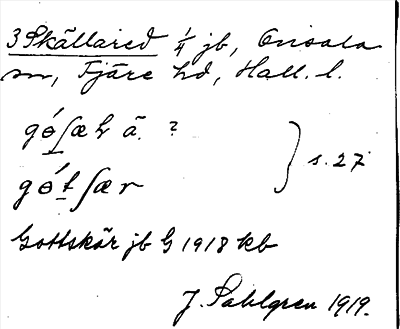 3 Skällared 1/4 jb, Onsala
sn, Fjäre hd, Hall. l.
gó̱ʃæ h ä. ?
gó t̠ ʃæ r
} s. 27
Gottskär jb G 1918 kb
J. Sahlgren 1919.